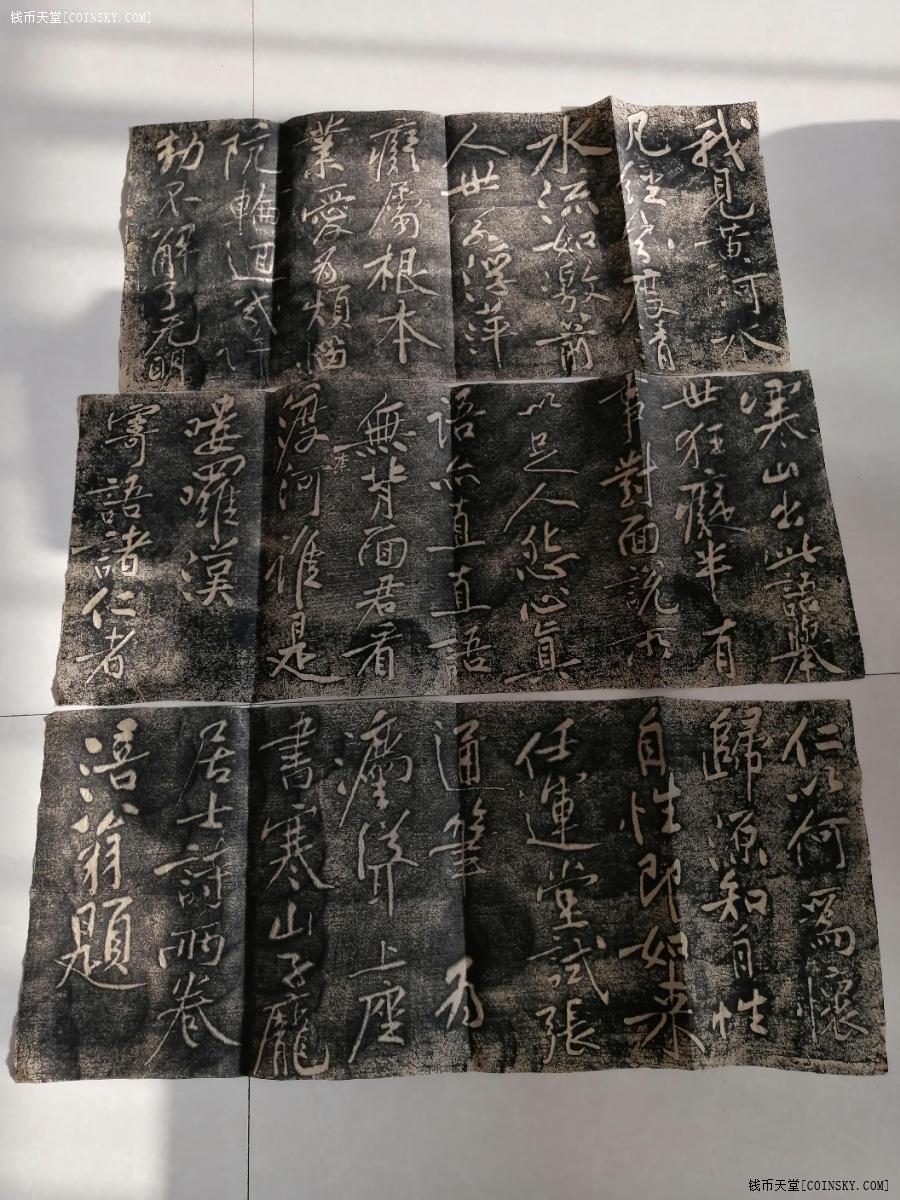 钱币天堂[COINSKY.COM]
我見黃河水
凡經幾度清
水流如激箭
人世若浮萍
癡屬根本
業愛為煩惱
阬輪迴幾許
劫不解了无明
寒山出此語舉
世狂癡半有
事對面說所
以足人怨心真
語亦直直語
無背面君看
渡奈河誰是
嘍囉漢
寄語諸仁者
仁以何為懷
歸源知自性
自性即如來
任運堂試張
通筆為
灋聳上座
書寒山子龐
居士詩兩卷
涪翁題
钱币天堂[COINSKY.COM]